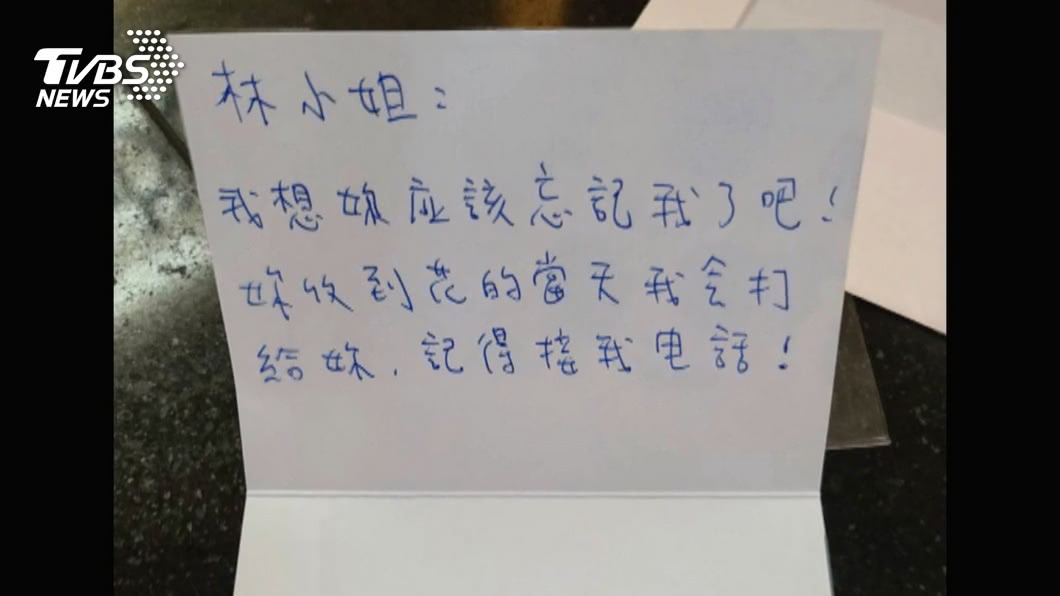 TVBS
NEWS
林小姐：
我想妳应該忘記我了吧！
妳收到花的當天我会打
給妳，記得接我电話！